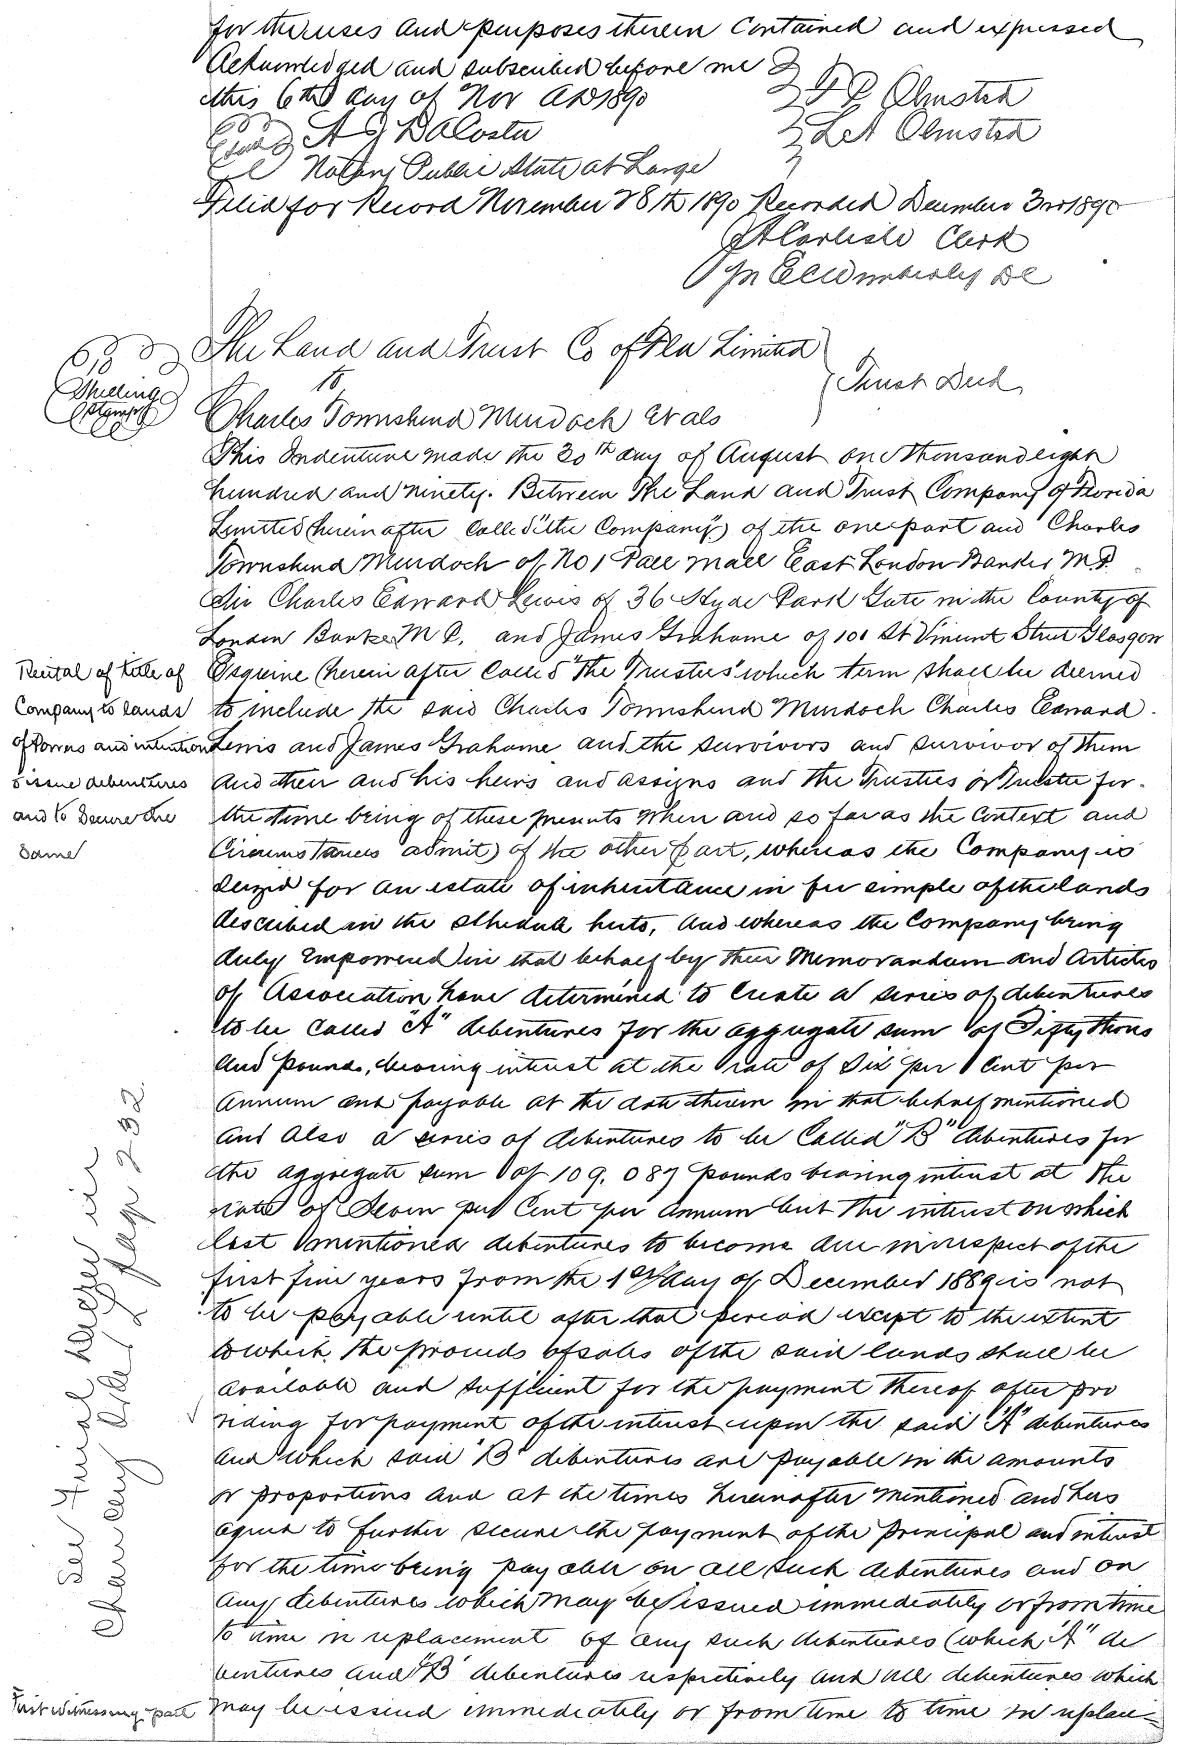 for the uses and purposes therein contained and expressed
Acknowledged and subscribed before me
this 6th day of Nov AD 1890
F P Olmsted
L A Olmsted
A J DaCosta
Notary Public State at Large
Filed for Record November 28th 1890 Recorded December 3rd 1890
J A Carlisle Clerk
pr E C Wimberley DC
The Land and Trust Co of Fla Limited
to
Trust Deed
Charles Townshend Murdoch et als
Shilling
Stamp
This Indenture made the 30th day of August one thousand eight
hundred and ninety. Between The Land and Trust Company of Florida
Limited (herein after called "the Company") of the one part and Charles
Townshend Murdoch of No 1 Pall Mall East London Banker M.P.
Sir Charles Edward Lewis of 36 Hyde Park Gate in the County of
London Bank M P. and James Grahame of 101 St Vincent Street Glasgow
Esquire (herein after called "the Trustees" which term shall be deemed
to include the said Charles Townshend Murdoch Charles Edward
Lewis and James Grahame and the survivors and survivor of them
and their and his heirs and assigns and the Trustees or Trustee for
the time being of these presents when and so far as the context and
Circumstances admit) of the other part, whereas the Company is
seized for an estate of inheritance in fee simple of the lands
described in the schedule hereto, and whereas the Company being
duly empowered in that behalf by their Memorandum and Articles
of Association have determined to create a series of debentures
to be called "A" debentures for the aggregate sum of Fifty thous
and pounds, bearing interest at the rate of six per cent per
annum and payable at the date therein in that behalf mentioned
and also a series of debentures to be called "B" debentures for
the aggregate sum of 109,087 pounds bearing interest at the
rate of Seven per cent per annum but the interest on which
last mentioned debentures to become due in respect of the
first five years from the 1st day of December 1889 is not
to be payable until after that period except to the extent
to which the proceeds of sales of the said lands shall be
available and sufficient for the payment thereof after pro
viding for payment of the interest upon the said "A" debentures
and which said "B" debentures are payable in the amounts
or proportions and at the times hereinafter mentioned and has
agreed to further secure the payment of the principal and interest
for the time being payable on all such debentures and on
any debentures which may be issued immediately or from time
to time in replacement of any such debentures (which "A" de
bentures and "B" debentures respectively and all debentures which
may be issued immediately or from time to time in replace=
Recital of title of
Company to lands
of Powers and intention
issue debentures
and to secure the
same
See Final decree in
Chancery Order page 232
First witnessing part